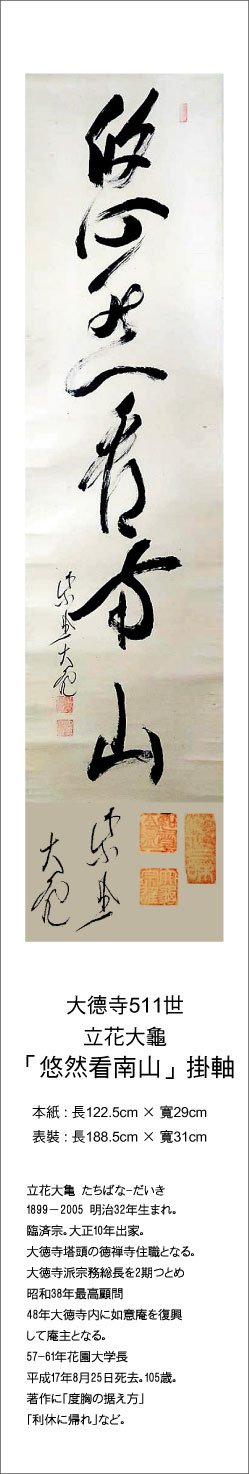 悠然看南山
紫野
大亀
紫野
大亀
大德寺511世
立花大龜
「悠然看南山」掛軸
本紙：長122.5cm × 寬29cm
表裝：長188.5cm × 寬31cm
立花大亀 たちばな-だいき
1899－2005 明治32年生まれ。
臨済宗。大正10年出家。
大徳寺塔頭の徳禅寺住職となる。
大徳寺派宗務総長を2期つとめ
昭和38年最高顧問
48年大徳寺内に如意庵を復興
して庵主となる。
57-61年花園大学長
平成17年8月25日死去。105歳。
著作に「度胸の据え方」
「利休に帰れ」など。